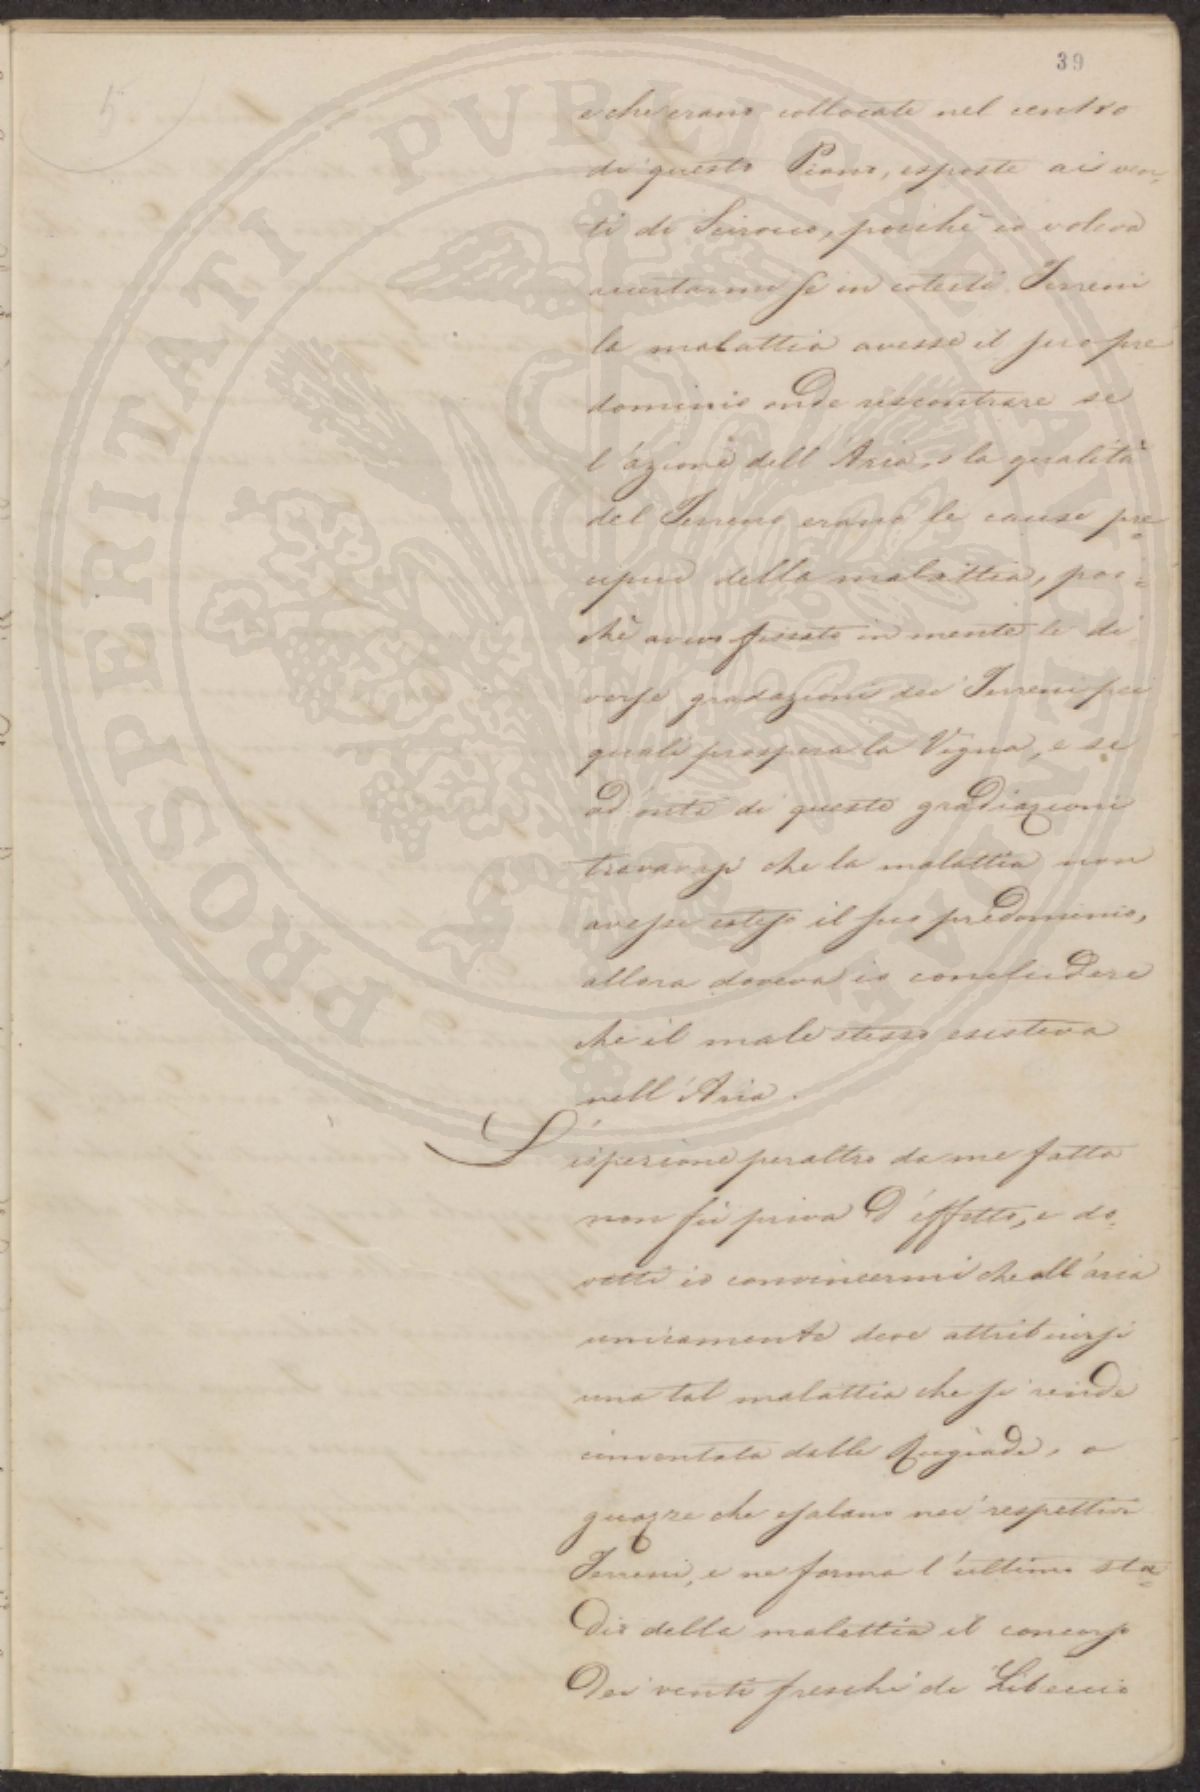 39
5
e che erano collocate nel centro
di questo Piano, esposte ai ven-
ti di Scirocco, poichè io voleva
accertarmi se in cotesti Terreni
la malattia avesse il suo pre
dominio onde riscontrare se
l'azione dell'Aria, o la qualità
del Terreno erano le cause pre-
cipue della malattia, poi-
chè avevo fissato in mente le di
verse gradazioni dei Terreni pei
quali prospera la Vigna, e se
ad onta di queste gradiazioni
trovavasi che la malattia non
avesse esteso il suo predominio,
allora doveva io concludere
che il male stesso esisteva
nell'Aria.
L'isperione peraltro da me fatta
non fù priva d'effetto, e do-
vetti io convincermi che all'aria
unicamente deve attribuirsi
una tal malattia che si rende
cimentata dalle Rugiade, o
guazze che esalano nei respettivi
Terreni, e ne forma l'ultimo sta-
dio della malattia il concorso
dei venti freschi di Libeccio
PROSPERITATI PVBLICAE AVGENDAE